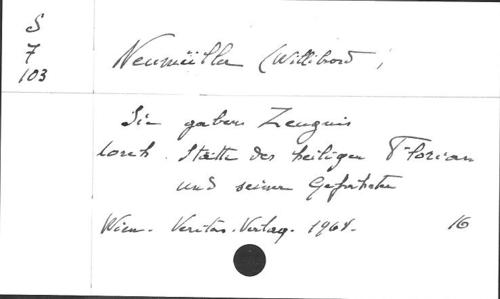 S
7
103
Neumüller (Willibrord),
Sie gaben Zeugnis
Lorch. Stätte des heiligen Florian
und seiner Gefährten
Wien. Veritas-Verlag. 1968.
16